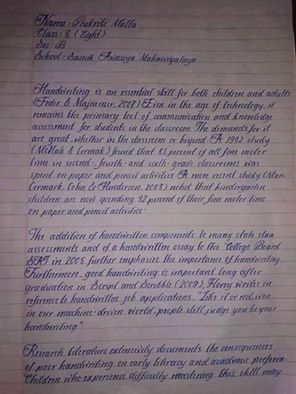 Name : Prakriti Malla
Class : 8 (Eight)
Sec : B
School : Sainik Awasiya Mahavidyalaya
Handwriting is an essential skill for both children and adults
(Feder & Majnemer, 2007) Even in the age of technology, it
remains the primary tool of communication and knowledge
assessment for students in the classroom. The demands for it
are great, whether in the classroom or beyond. A 1992 study
(McHale & Cermak) found that 85 percent of all fine motor
time in second- fourth- and sixth-grade classrooms was
spent on paper and pencil activities. A more recent study (Marr,
Cermark, Cohn & Henderson, 2003) noted that kindergarten
children are now spending 42 percent of their fine motor time
on paper and pencil activities.
The addition of handwritten components to many state
assessments and of a handwritten essay to the College Board
SAT in 2005 further emphasize the importance of handwriting.
Furthermore, good handwriting is important long after
graduation in Script and Scribble (2009), Florey writes in
reference to handwritten job applications, "Like it or not, even
in our machine-driven world, people still judge you by your
handwriting".
Research literature extensively documents the consequences
of poor handwriting on early literacy and academic perform-
Children who experience difficulty mastering this skill may